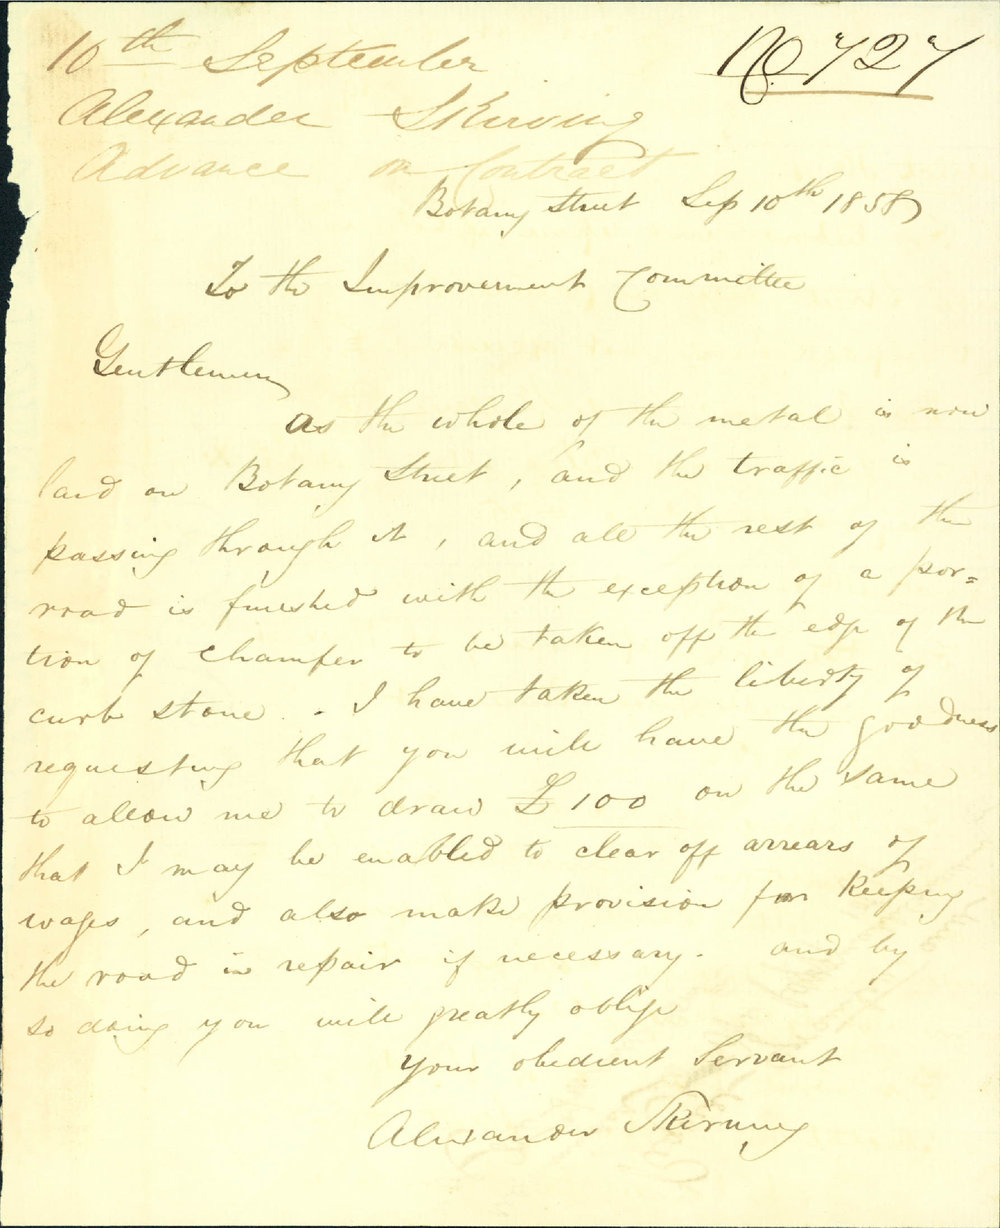 10th September
No 727
Alexander Skirving
Advance on Contract
Botany Street Sep 10th 1858
To the Improvement Committee
Gentlemen
as the whole of the metal is now
laid on Botany Street, and the traffic is
passing through it, and all the rest of the
road is finished with the exception of a por=
tion of chamfer to be taken off the edge of the
curb stone. - I have taken the liberty of
requesting that you will have the goodness
to allow me to draw £100 on the same
that I may be enabled to clear off arrears of
wages, and also make provision for keeping
the road in repair if necessary. and by
so doing you will greatly oblige
your obedient Servant
Alexander Skirving